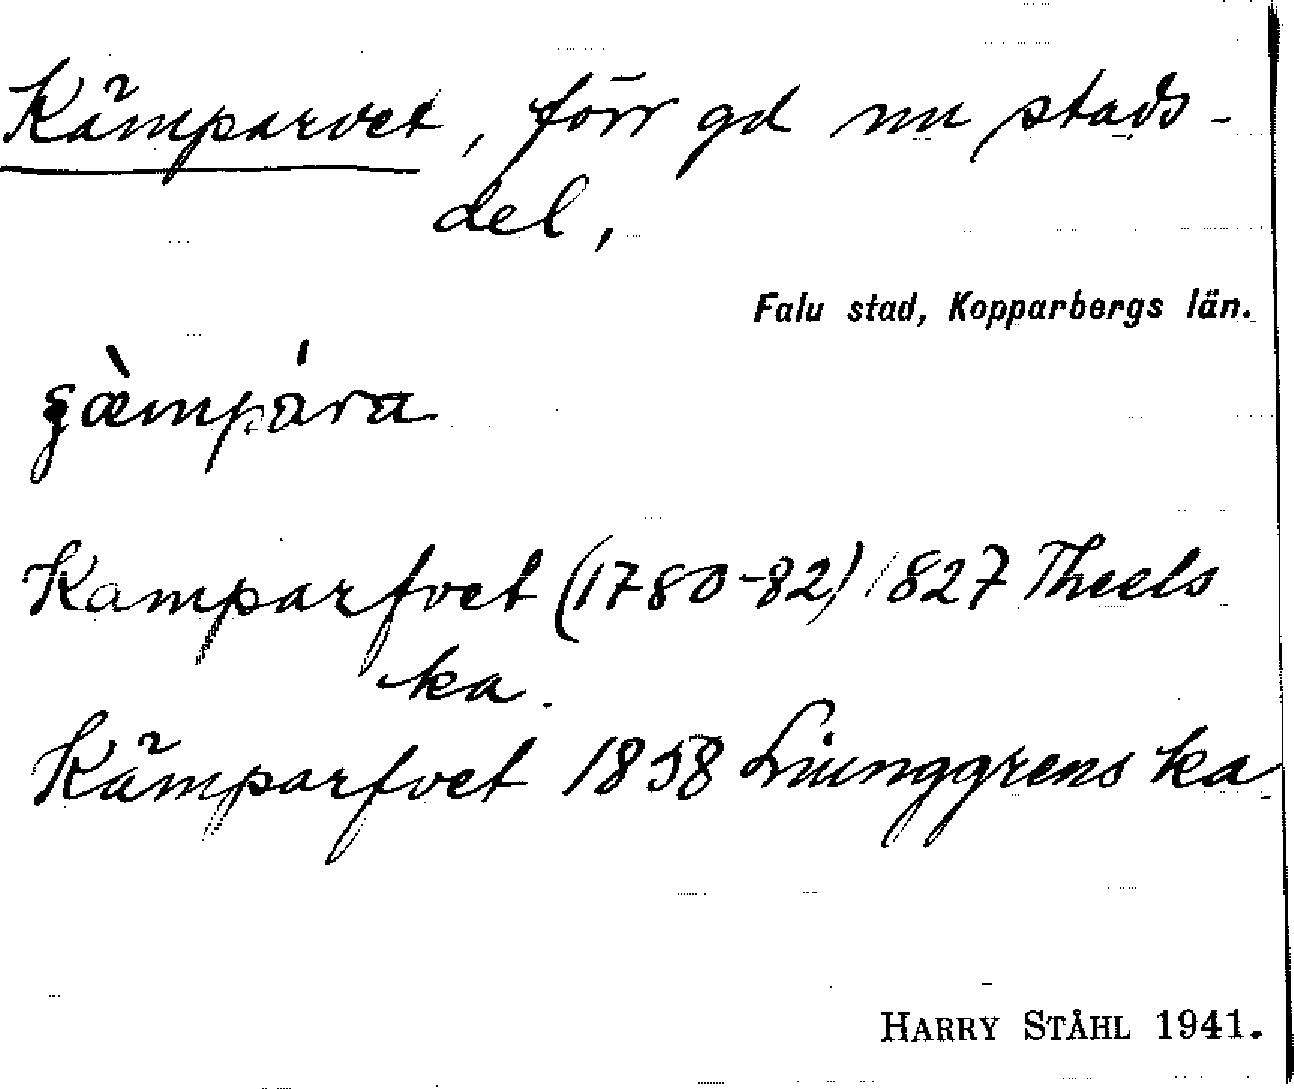 Kämparvet, förr gd nu stads-
del,
Falu stad, Kopparbergs län.
Kamparfvet (1780-82) 1827 Theels
ka.
Kämparfvet 1858 Liunggrens ka
HARRY STÅHL 1941.